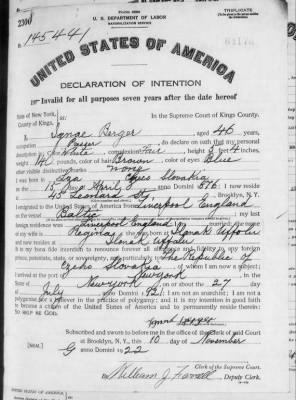 TRIPLICATE
U. S. DEPARTMENT OF LABOR
NATURALIZATION SERVICE
145441
UNITED STATES OF AMERICA
DECLARATION OF INTENTION
Invalid for all purposes seven years after the date hereof
State of New York,
County of Kings,
In the Supreme Court of Kings County.
I, Ignac Berger aged 46 years,
occupation do declare on oath that my personal
description is: Color White, complexion Fair, height 5 feet 4 inches,
140 pounds, color of hair Brown, color of eyes Blue
other visible distinctive marks none
I was born in Slovakia
on the 15 day of April anno Domini 1876; I now reside
at 45 St., Brooklyn, N.Y.
I emigrated to the United States of America from Liverpool England
on the vessel Baltic; my last
foreign residence was Liverpool England
It is my bona fide intention to renounce forever all allegiance and fidelity to any foreign
prince, potentate, state, or sovereignty, and particularly to The Republic of
Czecho Slovakia of whom I am now a subject;
I arrived at the port of New York in the
State of New York on or about the 27 day
of July anno Domini 1921; I am not an anarchist; I am not a
polygamist nor a believer in the practice of polygamy; and it is my intention in good faith
to become a citizen of the United States of America and to permanently reside therein:
SO HELP ME GOD.
Subscribed and sworn to before me in the office of the Clerk of said Court
at Brooklyn, N.Y., this 10 day of November
[SEAL] anno Domini 1922
William J.
Clerk of the Supreme Court.
Deputy Clerk.